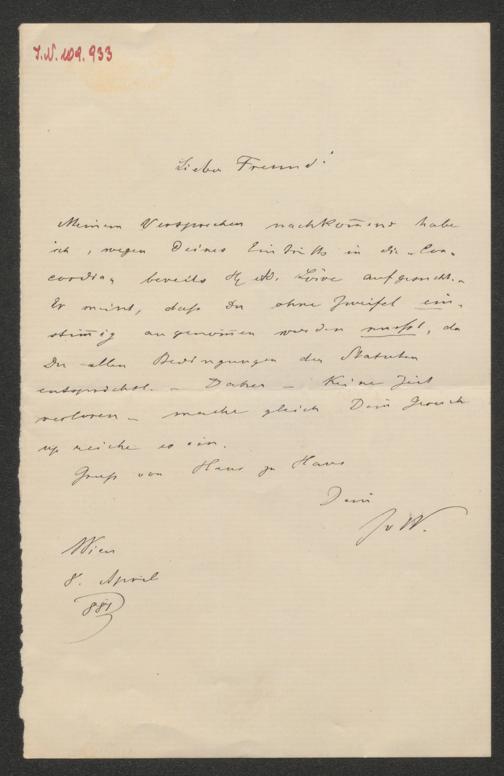 I.N. 109.933
Lieber Freund!
Meinem Versprechen nachkom̄end habe
ich, wegen Deines Eintritts in die „Con-
cordia„ bereits H Löwe aufgesucht. –
Er meint, daß Du ohne Zweifel ein-
stim̄ig angenom̄en werden mußt, da
Du allen Bedingungen der Statuten
entsprichst. – Daher – keine Zeit
verloren – mache gleich Dein Gesuch
u reiche es ein.
Gruß von Haus zu Haus
Dein
JvW.
Wien
8. April
881